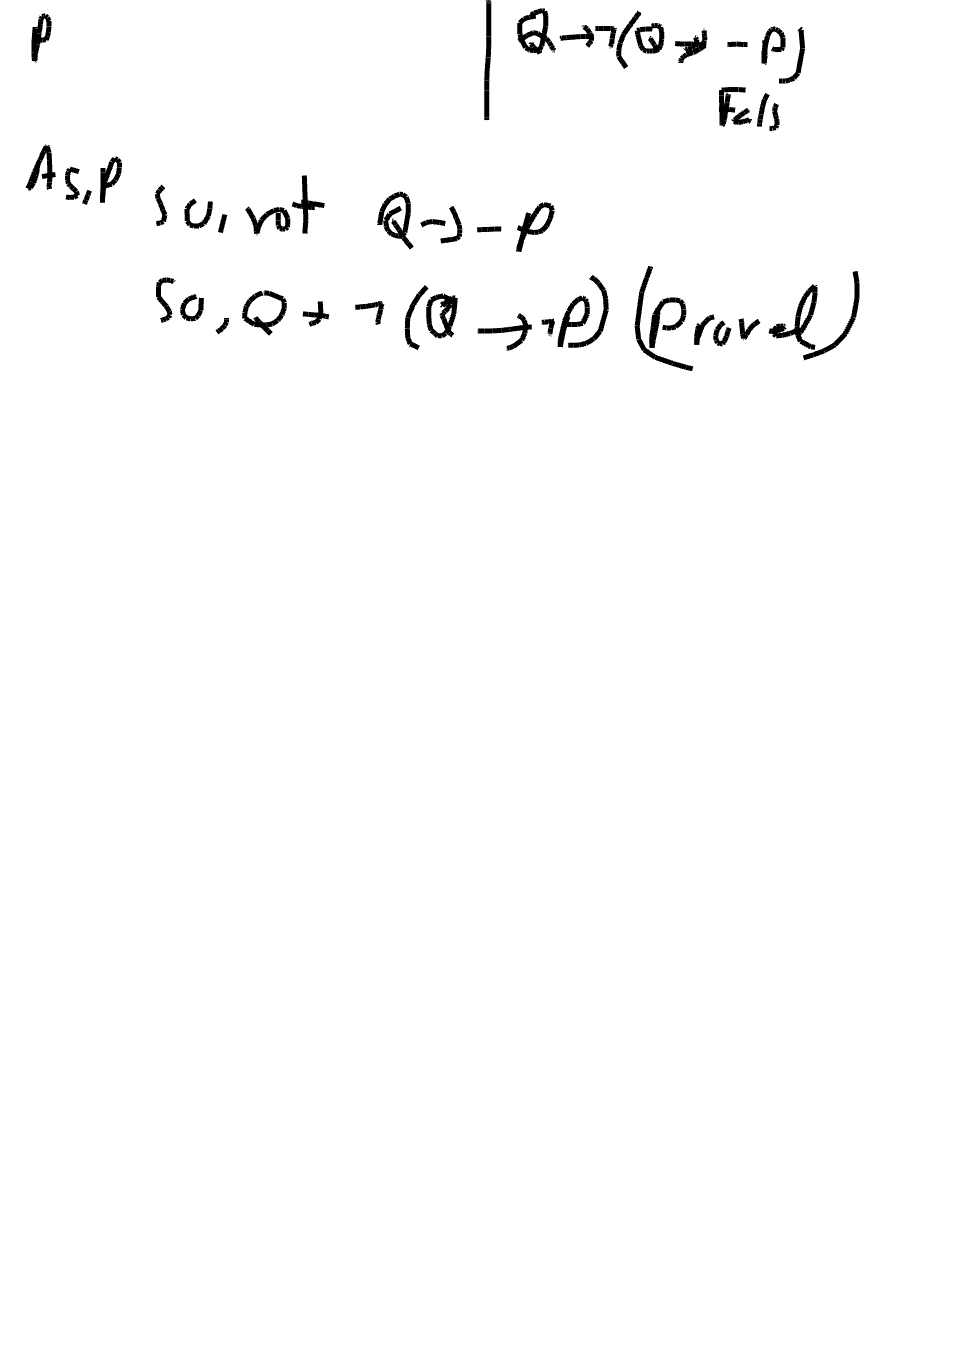 P | Q → ¬(Q → -P)
Fals
As, P so, not Q → -P
So, Q → ¬(Q → ¬P) (Proved)